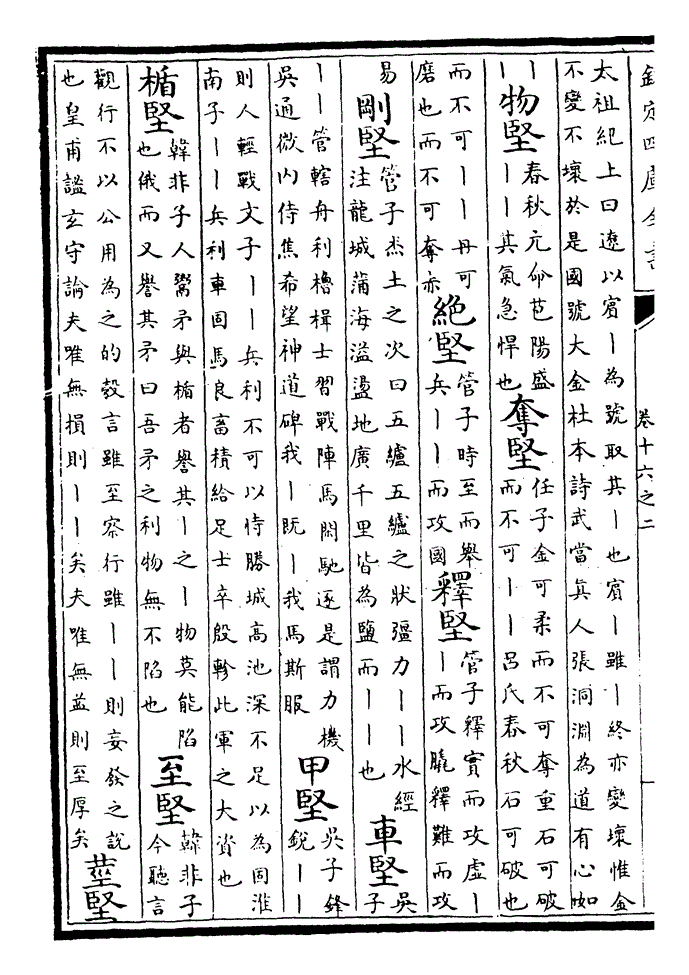 欽定四庫全書
卷十六之二
太祖紀上曰遼以賓丨為號取其丨也賓丨雖丨終亦變壞惟金
不變不壞於是國號大金杜本詩武當真人張洞淵為道有心如
丨丨
物堅
春秋元命苞陽盛
丨丨其氣急悍也
奪堅
任子金可柔而不可奪重石可破
而不可丨丨呂氏春秋石可破也
而不可丨丨丹可
磨也而不可奪亦
絶堅
管子時至而舉
兵丨丨而攻國
釋堅
管子釋實而攻虛丨
丨而攻膬釋難而攻
易
剛堅
管子杰土之次曰五纑五纑之狀彊力丨丨水經
注龍城蒲海溢盪地廣千里皆為鹽而丨丨也
車堅
吳
子
丨丨管轄舟利櫓楫士習戰陣馬閑馳逐是謂力機
吳通微内侍焦希望神道碑我丨既丨我馬斯服
甲堅
吳子鋒
銳丨丨
則人輕戰文子丨丨兵利不可以恃勝城高池深不足以為固淮
南子丨丨兵利車固馬良畜積給足士卒殷軫此軍之大資也
楯堅
韓非子人鬻矛與楯者譽其丨之丨物莫能陷
也俄而又譽其矛曰吾矛之利物無不陷也
至堅
韓非子
今聽言
觀行不以公用為之的彀言雖至察行雖丨丨則妄發之說
也皇甫謐玄守論夫唯無損則丨丨矣夫唯無益則至厚矣
莖堅